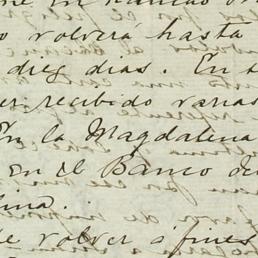 o volverá hasta
diez dias. En
er recibido varias
En la Magdalena
en el Banco de
ina.
de volver á fines